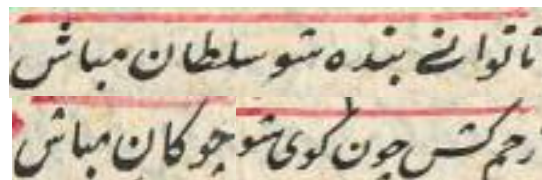 تا توانے بنده شو سلطان مباش
زخم کش چون گوی شو چوکان مباش